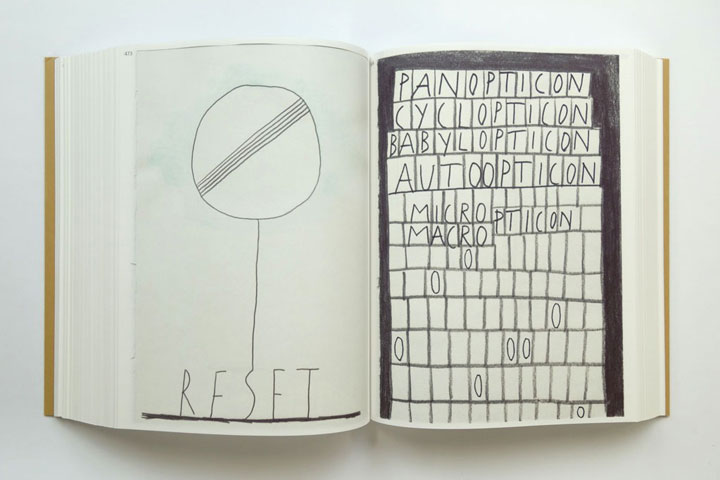 421
RESET
PANOPTICON
CYCLOPTICON
BABYLOPTICON
AUTOOPTICON
MICRO
MACRO
PTICON
0
0
0
0 00
0
0